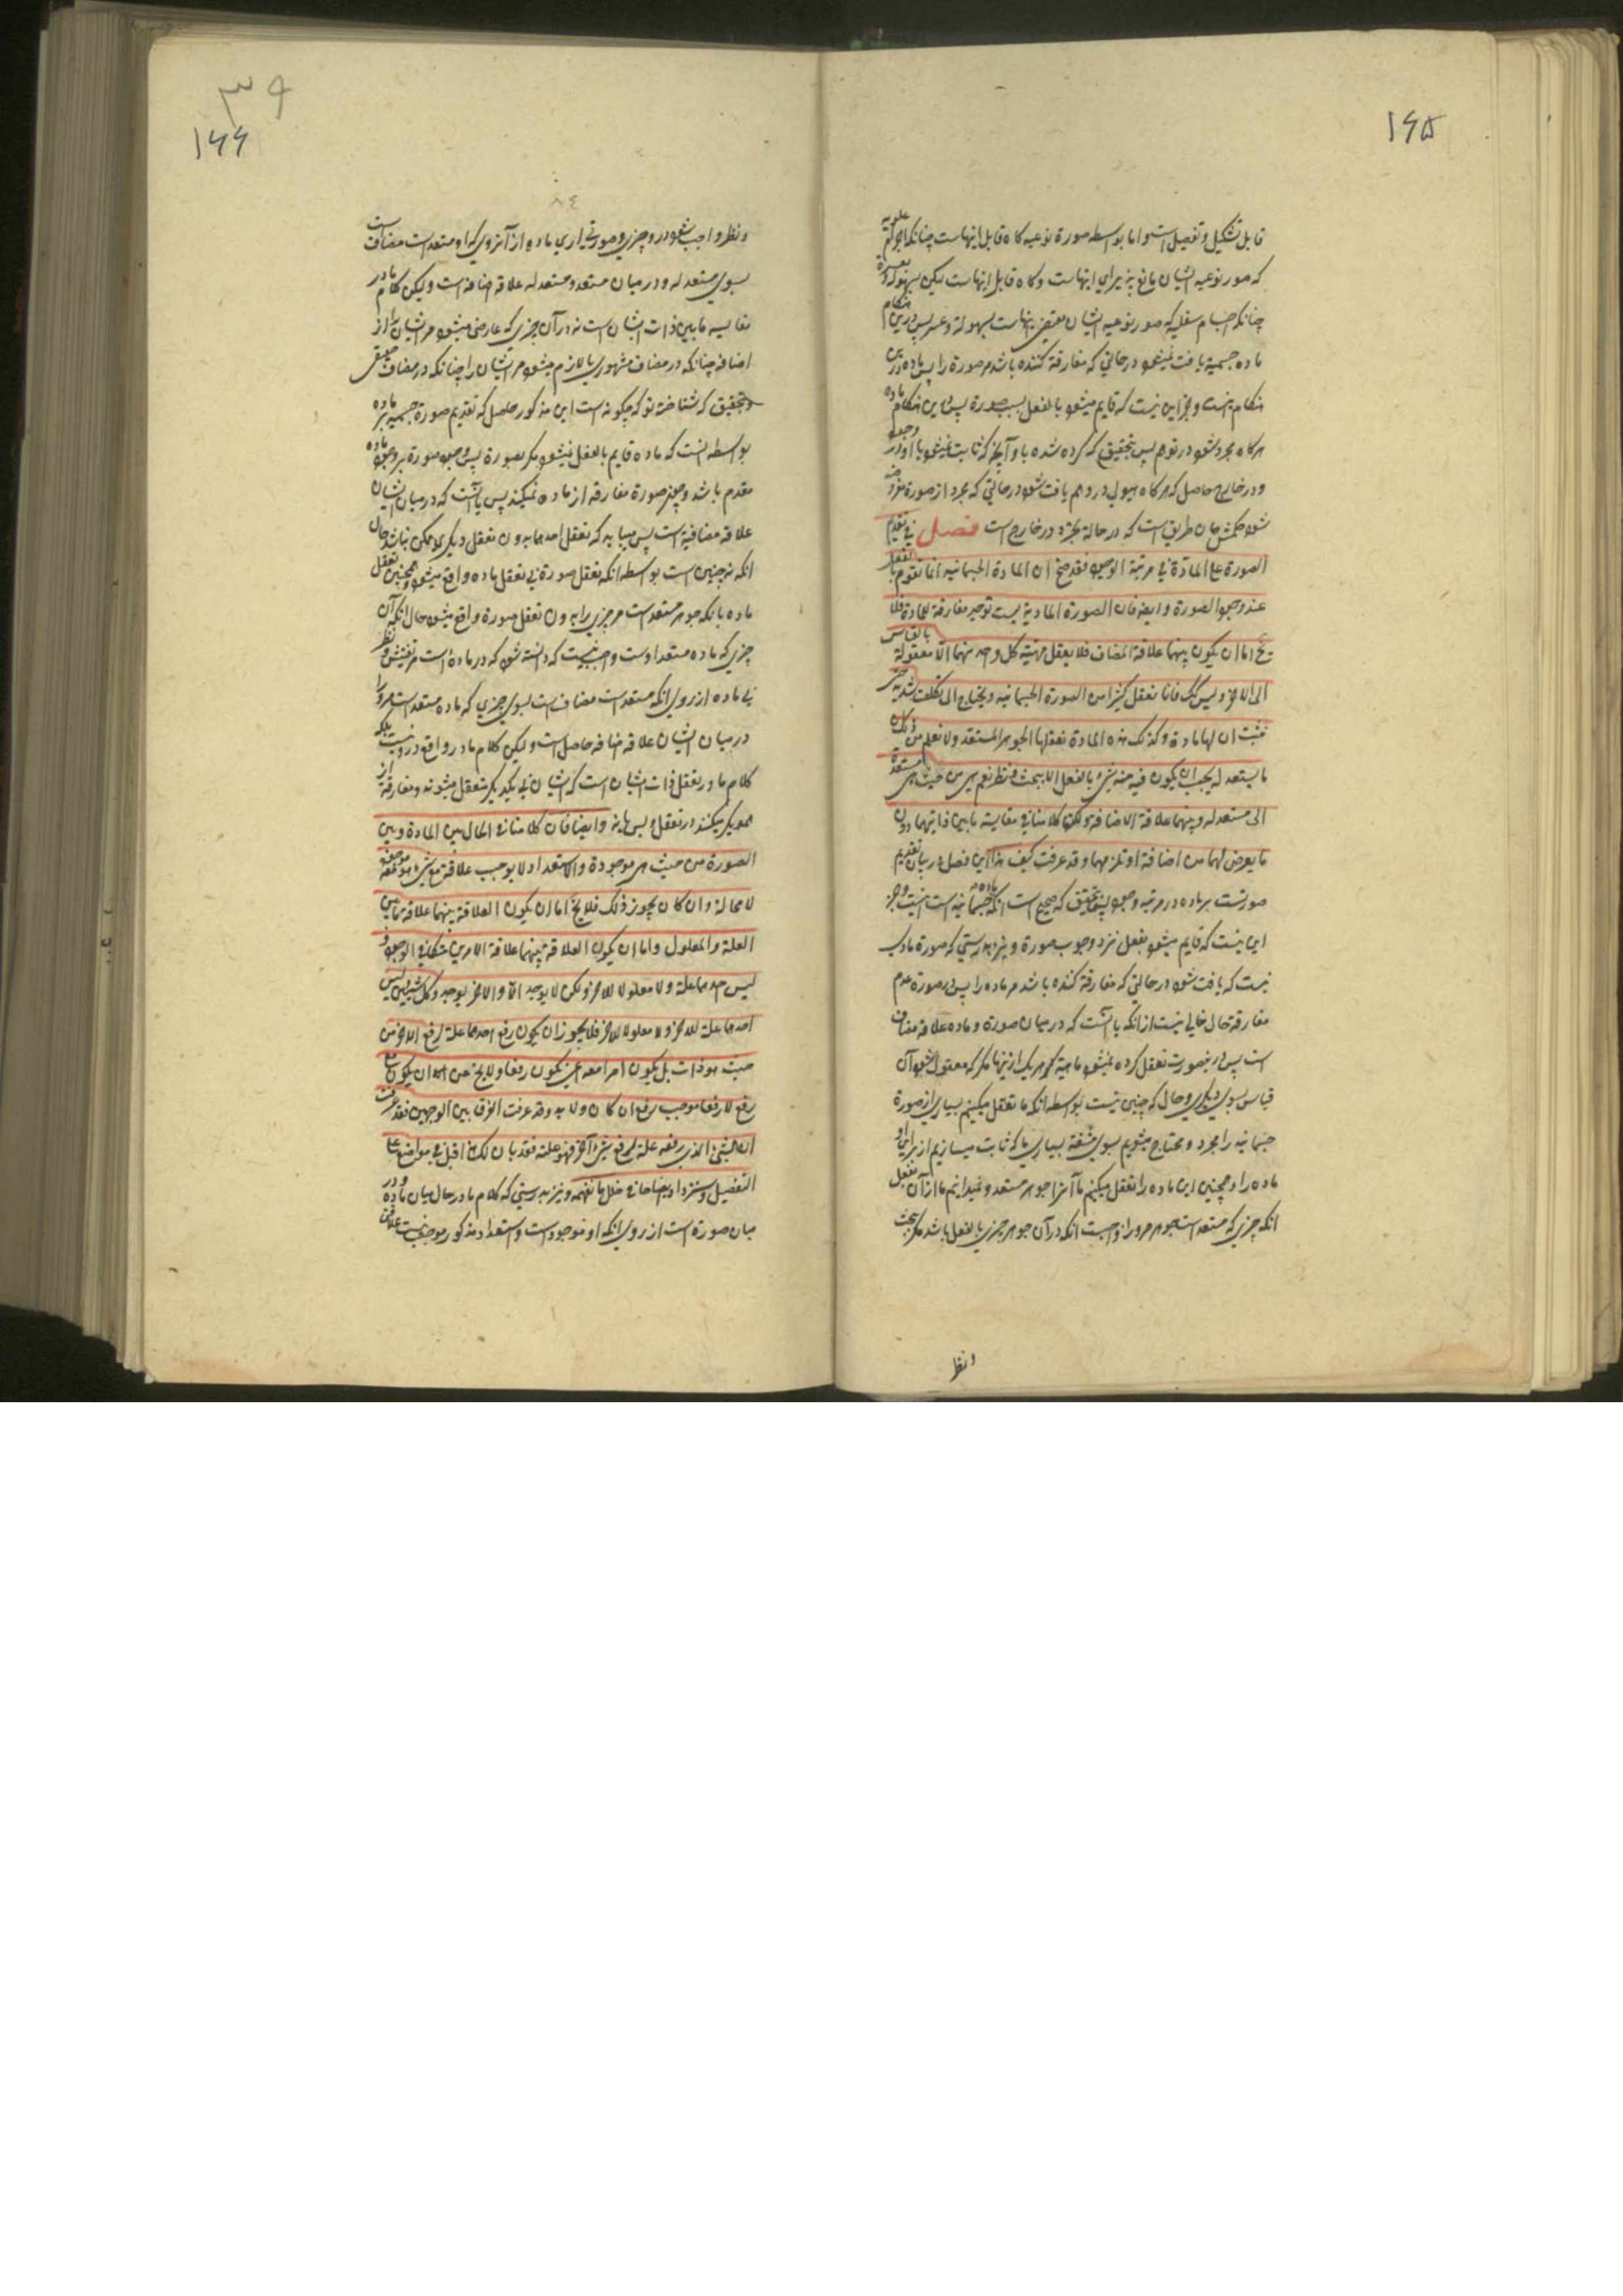 ۱۶۵
قابل تشکیل و تفصیل است و اما بواسطه صورة نوعیه کاه قابل اینهاست چنانکه اجرام علویه
که صور نوعیه ایشان مانع پذیرای اینهاست و کاه قابل اینهاست لیکن بسهولة و بعسرة
چنانکه اجسام سفلیه که صور نوعیه ایشان مقتضی اینهاست بسهولة و عسر پس درین هنکام
ماده جسمیة یافت نمیشود در حالتی که مفارقة کننده باشد مر صورة را پس ماده درین
هنکام نیست و جز این نیست که قایم میشود بالفعل بسبب صورة پس درین هنکام ماده
هرکاه مجرد شود در توهم پس بتحقیق که کرده شده با و آنچه که ثابت نمیشود با او در وجود
و در خارج حاصل که هرکاه هیولی در وهم یافت شود در حالتی که مجرد از صورة
شود حکمش همان طریق است که در حالة تجرد در خارج است فصل فی تقدیم
الصورة علی المادّة فی مرتبة الوجود فقد صح ان المادة الجسمانیه انما تقوم بالفعل
عند وجود الصورة و ایضا فان الصورة المادیة لیست توجد مفارقة للمادة فلا
یخ اما ان یکون بینهما علاقة المضاف فلا یعقل مهیته کل واحد منهما الا معقولة بالقیاس
الی الاخر و لیس کک فانا نعقل کثیرا من الصورة الجسمانیه و یحتاج الی تکلف شدید حتی
نثبت ان لها مادة و کذلک هذه المادة نعقلها الجوهر المستعد و لا نعلم من ذلک ان
ما یستعد له یجب ان یکون فیه منه شیء بالفعل الا ببحث و نظر نعم هی من حیث هی مستعدة
الی مستعد له و بینهما علاقة الاضافة و لکن کلامنا فی مقایسة ما بین ذاتیهما دون
ما یعرض لهما من اضافة او تلزمهما و قد عرفت کیف هذا این فصل در بیان تقدیم
صورتست بر ماده در مرتبه وجود پس بتحقیق که صحیح است انکه ماده جسمانیه است و جز
این نیست که قایم میشود بفعل نزد وجود صورة و نیز بدرستی که صورة مادیه
نیست که یافت شود در حالتی که مفارقة کننده باشد مر ماده را پس در صورة عدم
مفارقة حال خالی نیست از انکه یا آنست که در میان صورة و ماده علاقه مضاف
است پس درینصورت تعقل کرده نمیشود ماهیة هر یک از اینها مکر که معقول شود آن
قیاس بسوی دیکری و حال که چنین نیست بواسطه انکه ما تعقل میکنیم بسیاری از صورة
جسمانیه را مجرد و محتاج میشویم بسوی مشقة بسیاری تا که ثابت میسازیم از برای او
ماده را و همچنین این ماده را تعقل میکنیم ما آنرا جوهر مستعد و نمیدانیم ما از آن تعقل
انکه چیزی که مستعد است جوهر مر او را واجبست انکه در آن جوهر چیزی بالفعل باشد مکر ببحث
و نظر
۳۹
۱۶۶
۸۴
و نظر واجب شود در او چیزی و صورتی آری ماده از آنروی که او مستعد است مضاف است
بسوی مستعد له و در میان مستعد و مستعد له علاقه اضافه است و لیکن کلام ما در
مقایسه ما بین ذات ایشان است نه در آن چیزی که عارض میشود مر ایشان را از
اضافه چنانکه در مضاف مشهوری یا لازم میشود مر ایشان را چنانکه در مضاف حقیقی
و بتحقیق که شناختة تو که چکونه است این مذکور حاصل که تقدیم صورة جسمیه بر ماده
بواسطه انست که ماده قایم بالفعل نمیشود مکر بصورة پس وجود صورة بر وجود ماده
مقدم باشد و چون صورة مفارقه از ماده نمیکند پس یا آنست که در میان ایشان
علاقه مضافیة است پس میباید که تعقل احدهما بدون تعقل دیکری ممکن نباشد و حال
انکه نه چنین است بواسطه انکه تعقل صورة بی تعقل ماده واقع میشود و همچنین تعقل
ماده بانکه جوهر مستعد است مر چیزی را بدون تعقل صورة واقع میشود حال انکه آن
چیزی که ماده مستعد اوست واجب نیست که دانسته شود که در ماده است مکر بتفتیش و نظر
بی ماده از روی انکه مستعد است مضاف است بسوی چیزی که ماده مستعد است مر او را
در میان ایشان علاقه اضافه حاصل است و لیکن کلام ما در واقع در او نیست بلکه
کلام ما در تعقل ذات ایشان است که ایشان بی یکدیکر متعقل میشوند و مفارقة از
همدیکر میکنند در تعقل و بس و ایضا فان کلامنا فی الحال بین المادة و بین
الصورة من حیث هی موجودة و الاستعداد لا یوجب علاقة مع شیء هو موجود معه
لا محالة و ان کان یجوز ذلک فلا یخ اما ان یکون العلاقة بینهما علاقة ما بین
العلة و المعلول و اما ان یکون العلاقة بینهما علاقة الامرین متکافی الوجود و
لیس احدهما علة و لا معلولا للاخر و لکن لا یوجد الا و الاخر یوجد و کل شیئین لیس
احدهما علة للاخر و لا معلولا للاخر فلا یجوز ان یکون رفع احدهما علة لرفع الاخر من
حیث هو ذات بل یکون امرا معه اعنی یکون رفعا و لا یخ من ان یکون مع
رفع لا رفعا موجب رفع ان کان و لا بد و قد عرفت الفرق بین الوجهین فقد عرفت
ان الشیء الذی رفعه علة لرفع شیء آخر فهو علته فقد بان لک هذا قبل فی مواضع علی
التفصیل و سنزداد ایضاحا فی خلال ما نفهمه و نیز بدرستی که کلام ما در حال میان ماده و در
میان صورة است از روی انکه او موجود است و استعداد مذکور موجب نیست علاقة